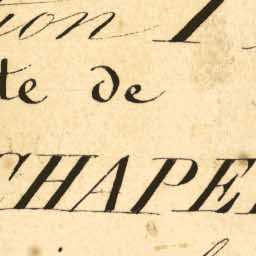 ion 1
te de
CHAPE